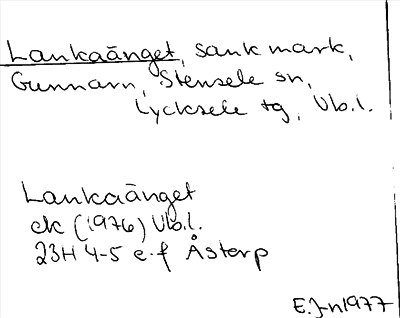 Lankaänget, sank mark,
Gunnarn, Stensele sn,
Lycksele tg, Vb.l.
Lankaänget
ek (1976) Vb.l.
23H 4-5 e-f Åstorp
E.J-n 1977